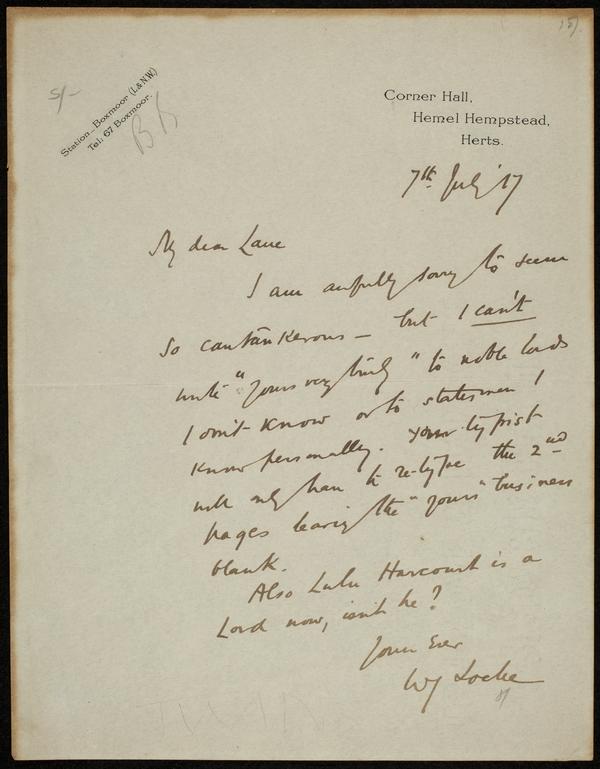 15/.
5/-
Station_ Boxmoor (L&N.W.)
Tel: 67 Boxmoor.
Corner Hall,
Hemel Hempstead,
Herts.
7th July '17
My dear Lane
I am awfully sorry to seem
so cantankerous – but I can't
write "yours very truly" to noble lords
I don't know or to statesmen I
know personally. Your typist
will only have to re-type the 2nd
pages leaving the "yours" business
blank.
Also Lulu Harcourt is a
Lord now, isn't he?
Yours Ever
WJ Locke